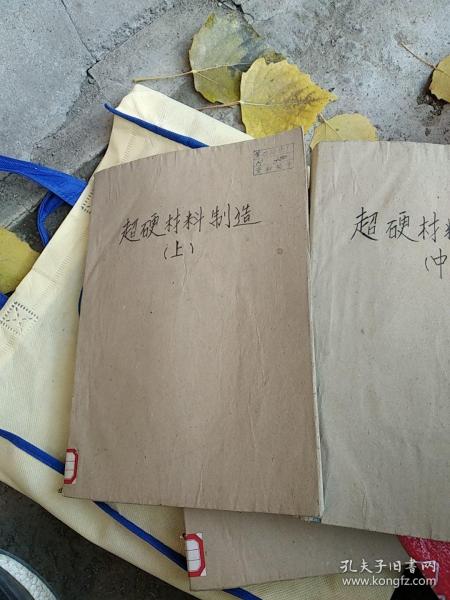 超硬材料制造
(上)
超硬材料
(中
孔夫子旧书网
www.kongfz.com